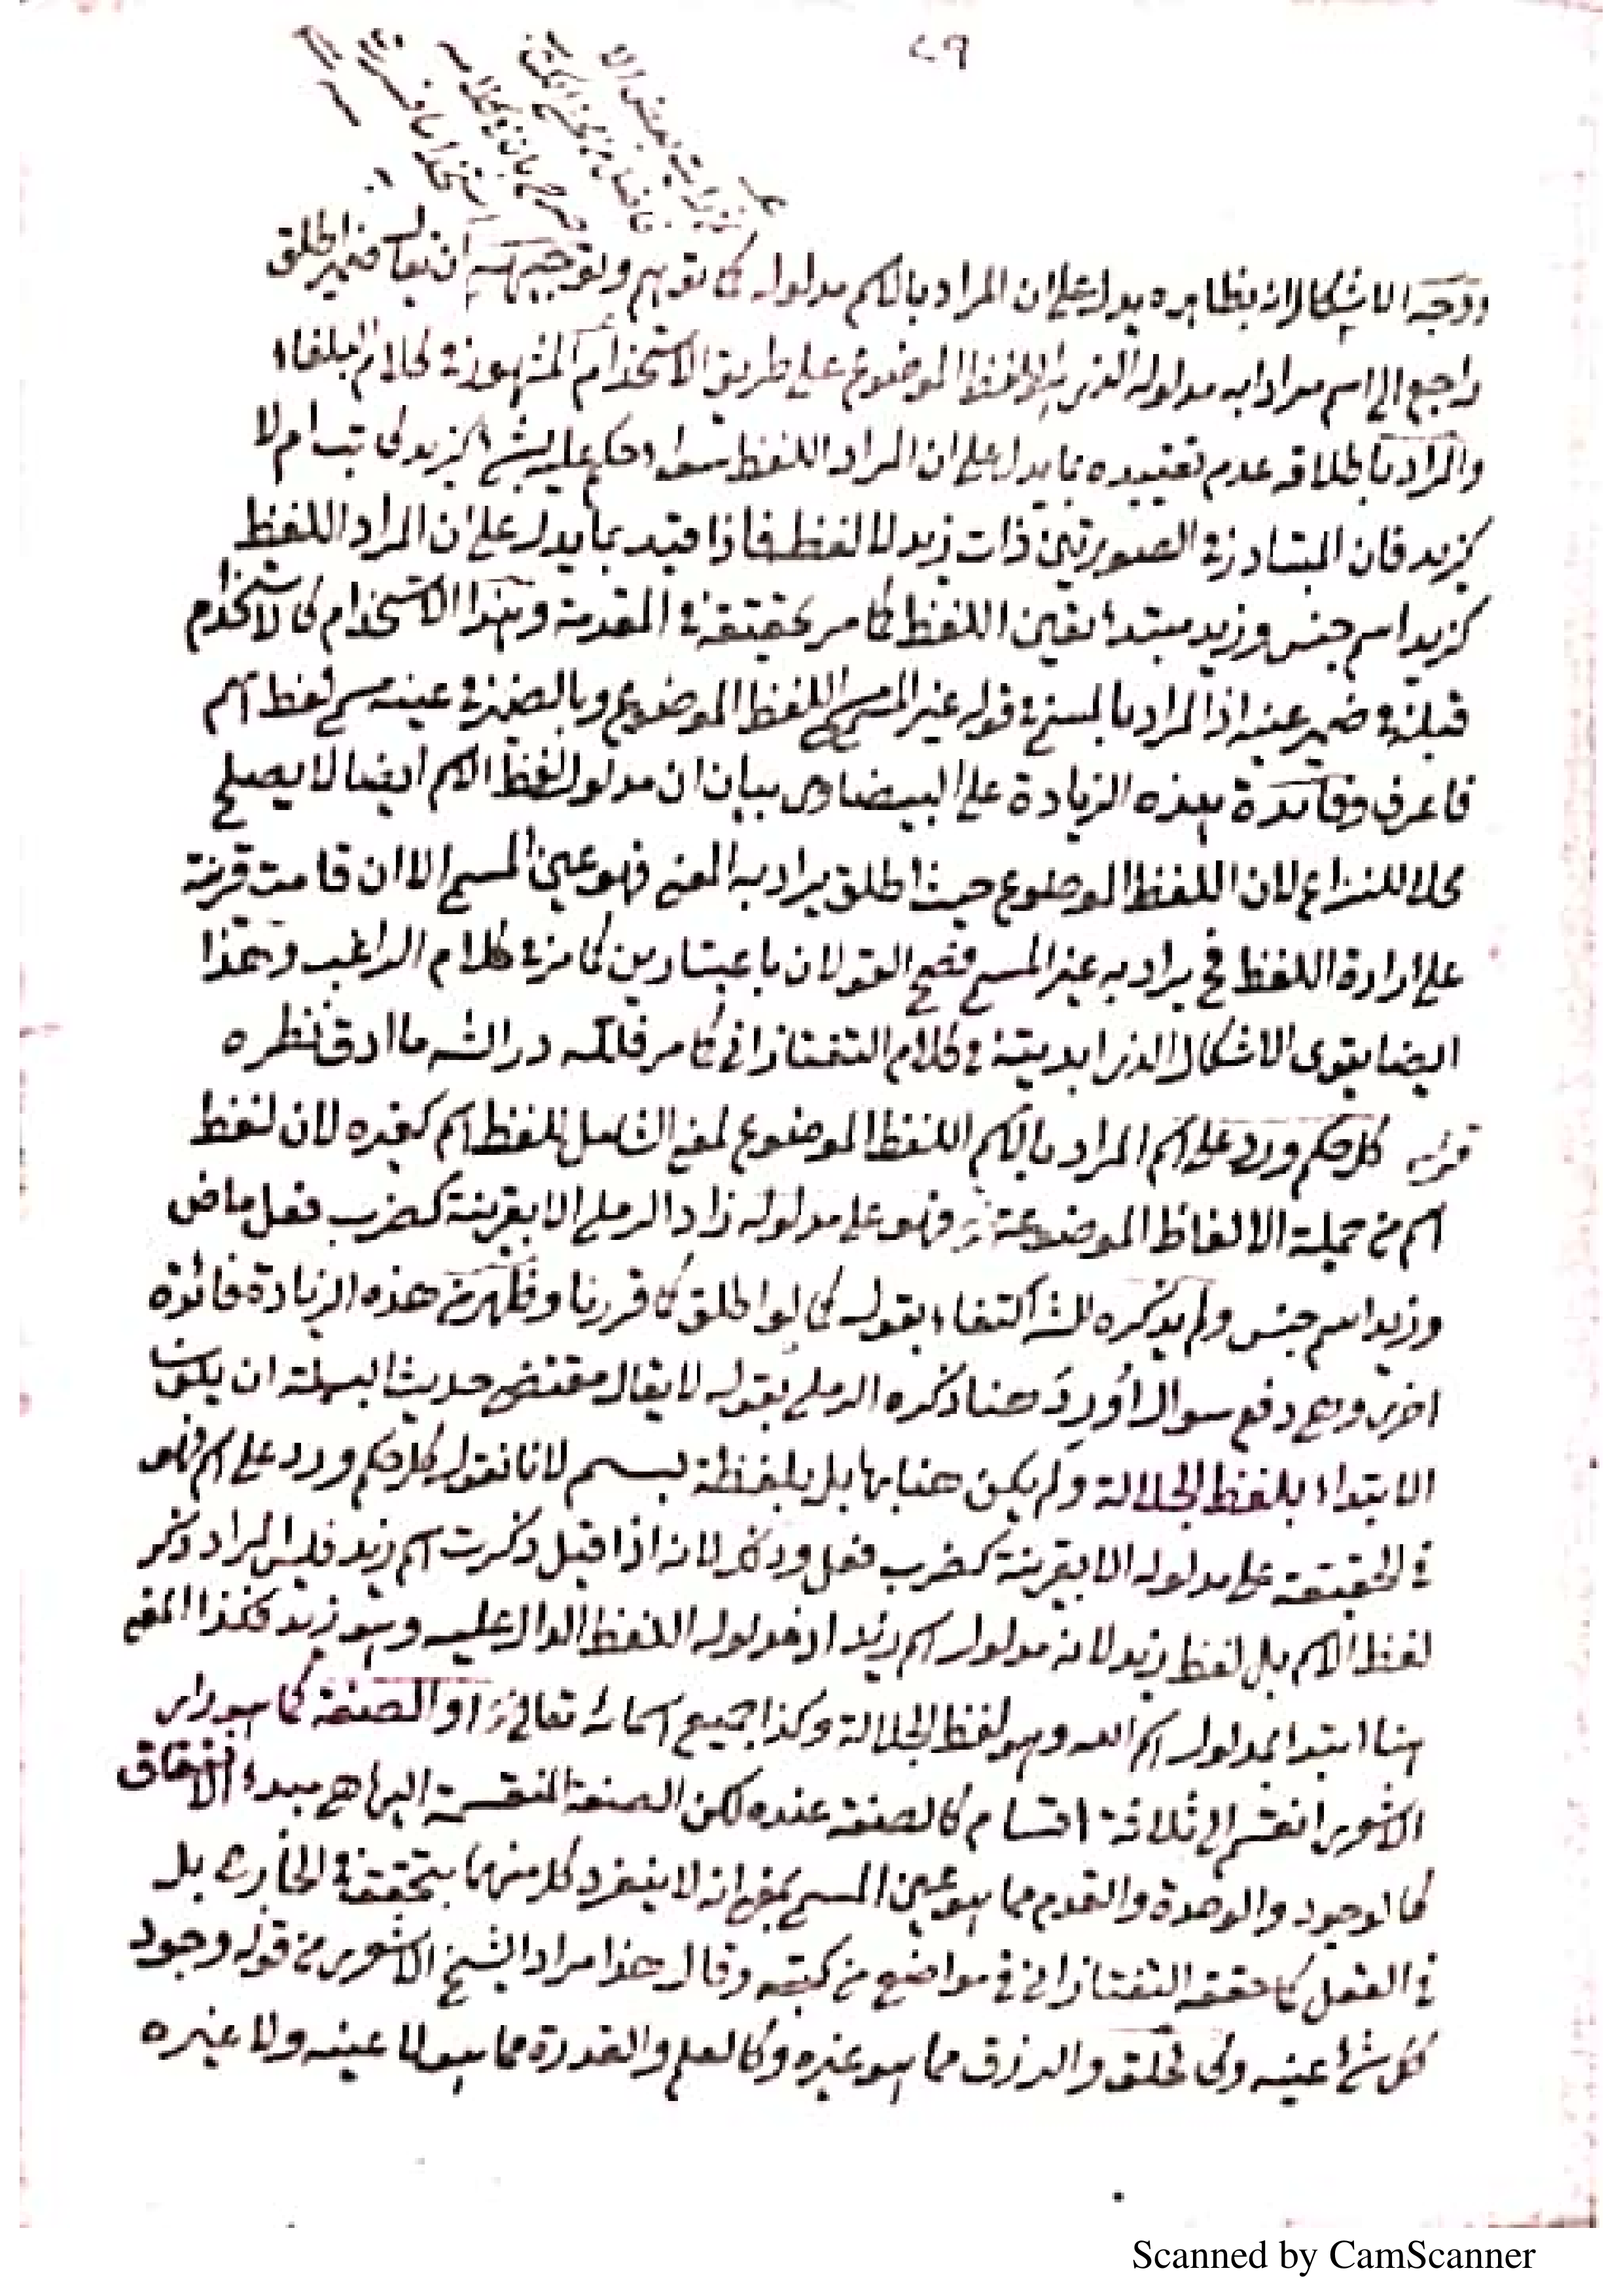 ٢٩
ووجه الاشكال انه بظاهره يدل على ان المراد بالاسم مدلوله كما توهم وتوجيهه ان يقال ضمير اطلق
راجع الى اسم مرادا به مدلوله الذي هو اللفظ الموضوع على طريق الاستخدام المشهور في كلام البلغاء
والمراد باطلاقه عدم تقييده بما يدل على ان المراد اللفظ سواء حكم عليه بشيء كزيد كاتب ام لا
كزيد فان المتبادر في الصورتين ذات زيد لا لفظه فاذا قيد بما يدل على ان المراد اللفظ
كزيد اسم جنس وزيد مبتدأ تعين اللفظ كما مر تحقيقه في المقدمة وهذا الاستخدام كالاستخدام
قبله في ضمير عينه اذ المراد بالمسمى في قوله غير المسمى اللفظ الموضوع وبالضمير في عينه مسمى لفظ اسم
فاعرف وفائدة هذه الزيادة على البيضاوي بيان ان مدلول لفظ الاسم ايضا لا يصلح
محلا للنزاع لان اللفظ الموضوع حيث اطلق يراد به المعنى فهو عين المسمى الا ان قامت قرينة
على ارادة اللفظ فح يراد به غير المسمى فصح القولان باعتبارين كما مر في كلام الراغب وبهذا
ايضا يقوى الاشكال الذي ابديته في كلام التفتازاني كما مر فلله در الش ما ادق نظره
قوله كل حكم ورد على اسم المراد بالاسم اللفظ الموضوع لمعنى الشامل للفظ اسم كغيره لان لفظ
اسم من جملة الالفاظ الموضوعة فهو على مدلوله زاد الرملي الا بقرينة كضرب فعل ماض
وزيد اسم جنس ولم يذكره الش اكتفاء بقوله كما لو اطلق كما قررنا وظهر من هذه الزيادة فائدة
اخرى وهي دفع سوال اُورِدَ هنا ذكره الرملي بقوله لا يقال مقتضى حديث البسملة ان يكون
الابتداء بلفظ الجلالة ولم يكن هنا بها بل بلفظة بسم لانا نقول كل حكم ورد على اسم فهو
في الحقيقة على مدلوله الا بقرينة كضرب فعل وذلك لانه اذا قيل ذكرت اسم زيد فليس المراد ذكر
لفظ الاسم بل لفظ زيد لانه مدلول اسم زيد اذ مدلوله اللفظ الدال عليه وهو زيد فكذا المعنى
هنا ابتدا بمدلول اسم الله وهو لفظ الجلالة وكذا جميع اسمائه تعالى او الصفة كما هو راي
الاشعري انقسم الى ثلاثة اقسام كالصفة عنده لكن الصفة المنقسمة اليها هي مبدء الاشتقاق
كالوجود والوحدة والقدم مما هو عين المسمى بمعنى انه لا ينفرد كل منهما بتحققه في الخارج بل
في العقل كما حققه التفتازاني في مواضع من كتبه وقال هذا مراد الشيخ الاشعري من قوله وجود
كل شيء عينه وكالخلق والرزق مما هو غيره وكالعلم والقدرة مما هو لا عينه ولا غيره
Scanned by CamScanner